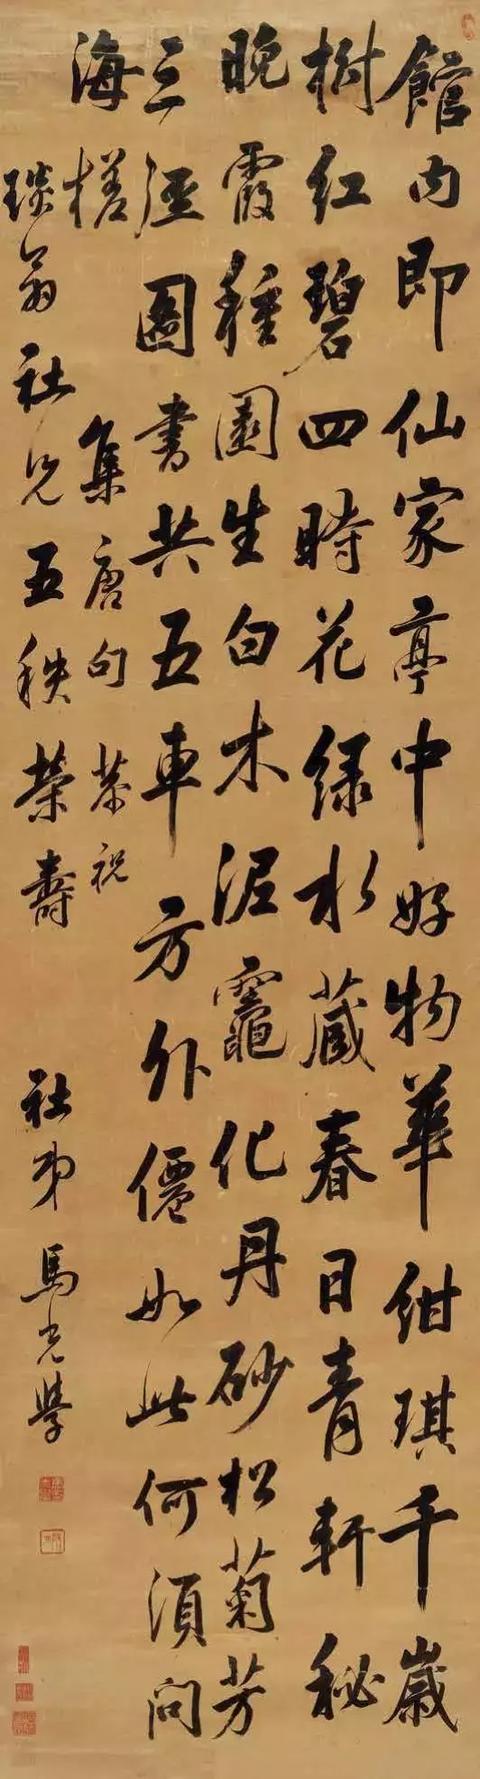 館內即仙家亭中好物華紺琪千歲
樹紅碧四時花緑水藏春日青軒秘
晚霞種園生白木泥竈化丹砂松菊芳
三徑圖書共五車方外僊如此何須問
海槎 集唐句 恭祝
琰翁社兄五秩榮壽 社弟馬光學